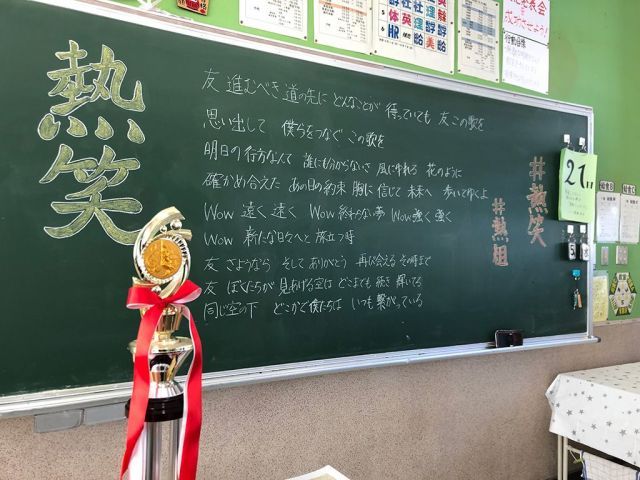 熱笑
友 進むべき道の先に どんなことが 待っていても 友 この歌を
思い出して 僕らをつなぐ この歌を
明日の行方なんて 誰にも分からないさ 風に揺れる 花のように
確かめ合えた あの日の約束 胸に信じて 未来へ 歩いて行くよ
Wow 遠く 遠く Wow 終わらない夢 Wow 強く 強く
Wow 新たな日々へと 旅立つ時
友 さようなら そして ありがとう 再び会える その時まで
友 ぼくたちが 見あげる空は どこまでも 続き 輝いてる
同じ空の下 どこかで僕たちは いつも 繋がっている
#熱笑
#熱組
21日